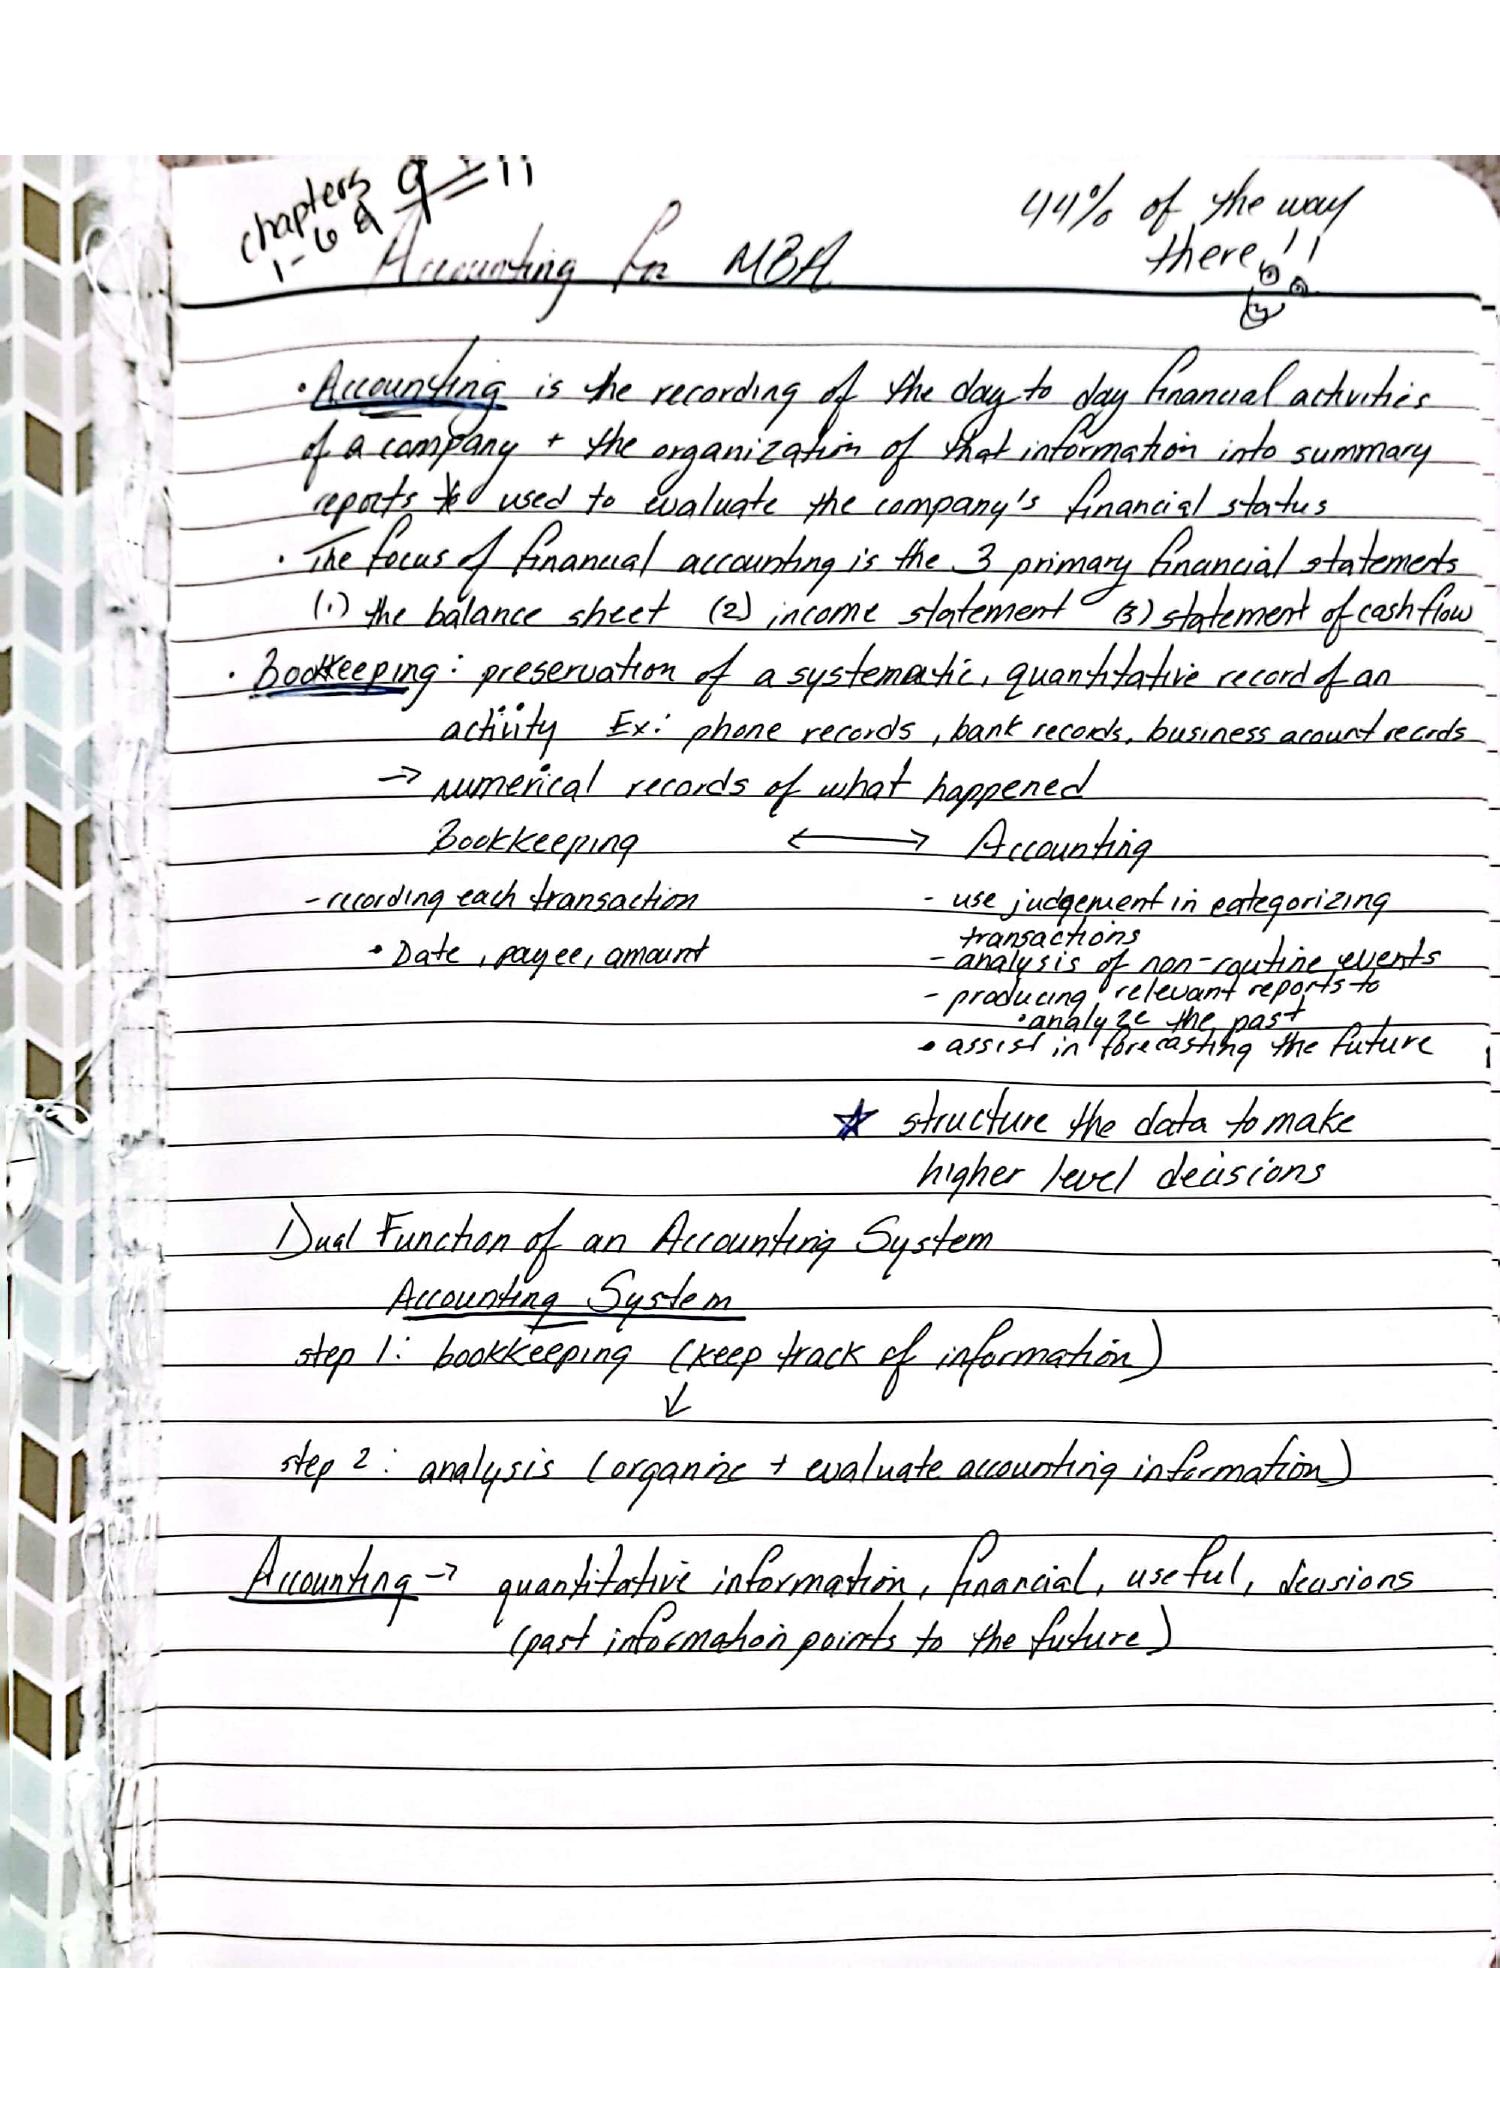 chapters 9-11
1-6 &
Accounting for MBA
44% of the way
there!!
• Accounting is the recording of the day to day financial activities
of a company + the organization of that information into summary
reports used to evaluate the company's financial status
• The focus of financial accounting is the 3 primary financial statements
(1.) the balance sheet (2) income statement (3) statement of cash flow
• Bookkeeping: preservation of a systematic, quantitative record of an
activity Ex: phone records, bank records, business acount records
→ numerical records of what happened
Bookkeeping ↔ Accounting
- recording each transaction
• Date, payee, amount
- use judgement in categorizing
transactions
- analysis of non-routine events
- producing relevant reports to
• analyze the past
• assist in forecasting the future
☆ structure the data to make
higher level decisions
Dual Function of an Accounting System
Accounting System
step 1: bookkeeping (keep track of information)
↓
step 2: analysis (organize + evaluate accounting information)
Accounting → quantitative information, financial, useful, decisions
(past information points to the future)